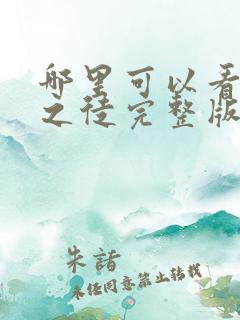 哪里可以看
之徒完整版
朱諸
未经同意禁止转载